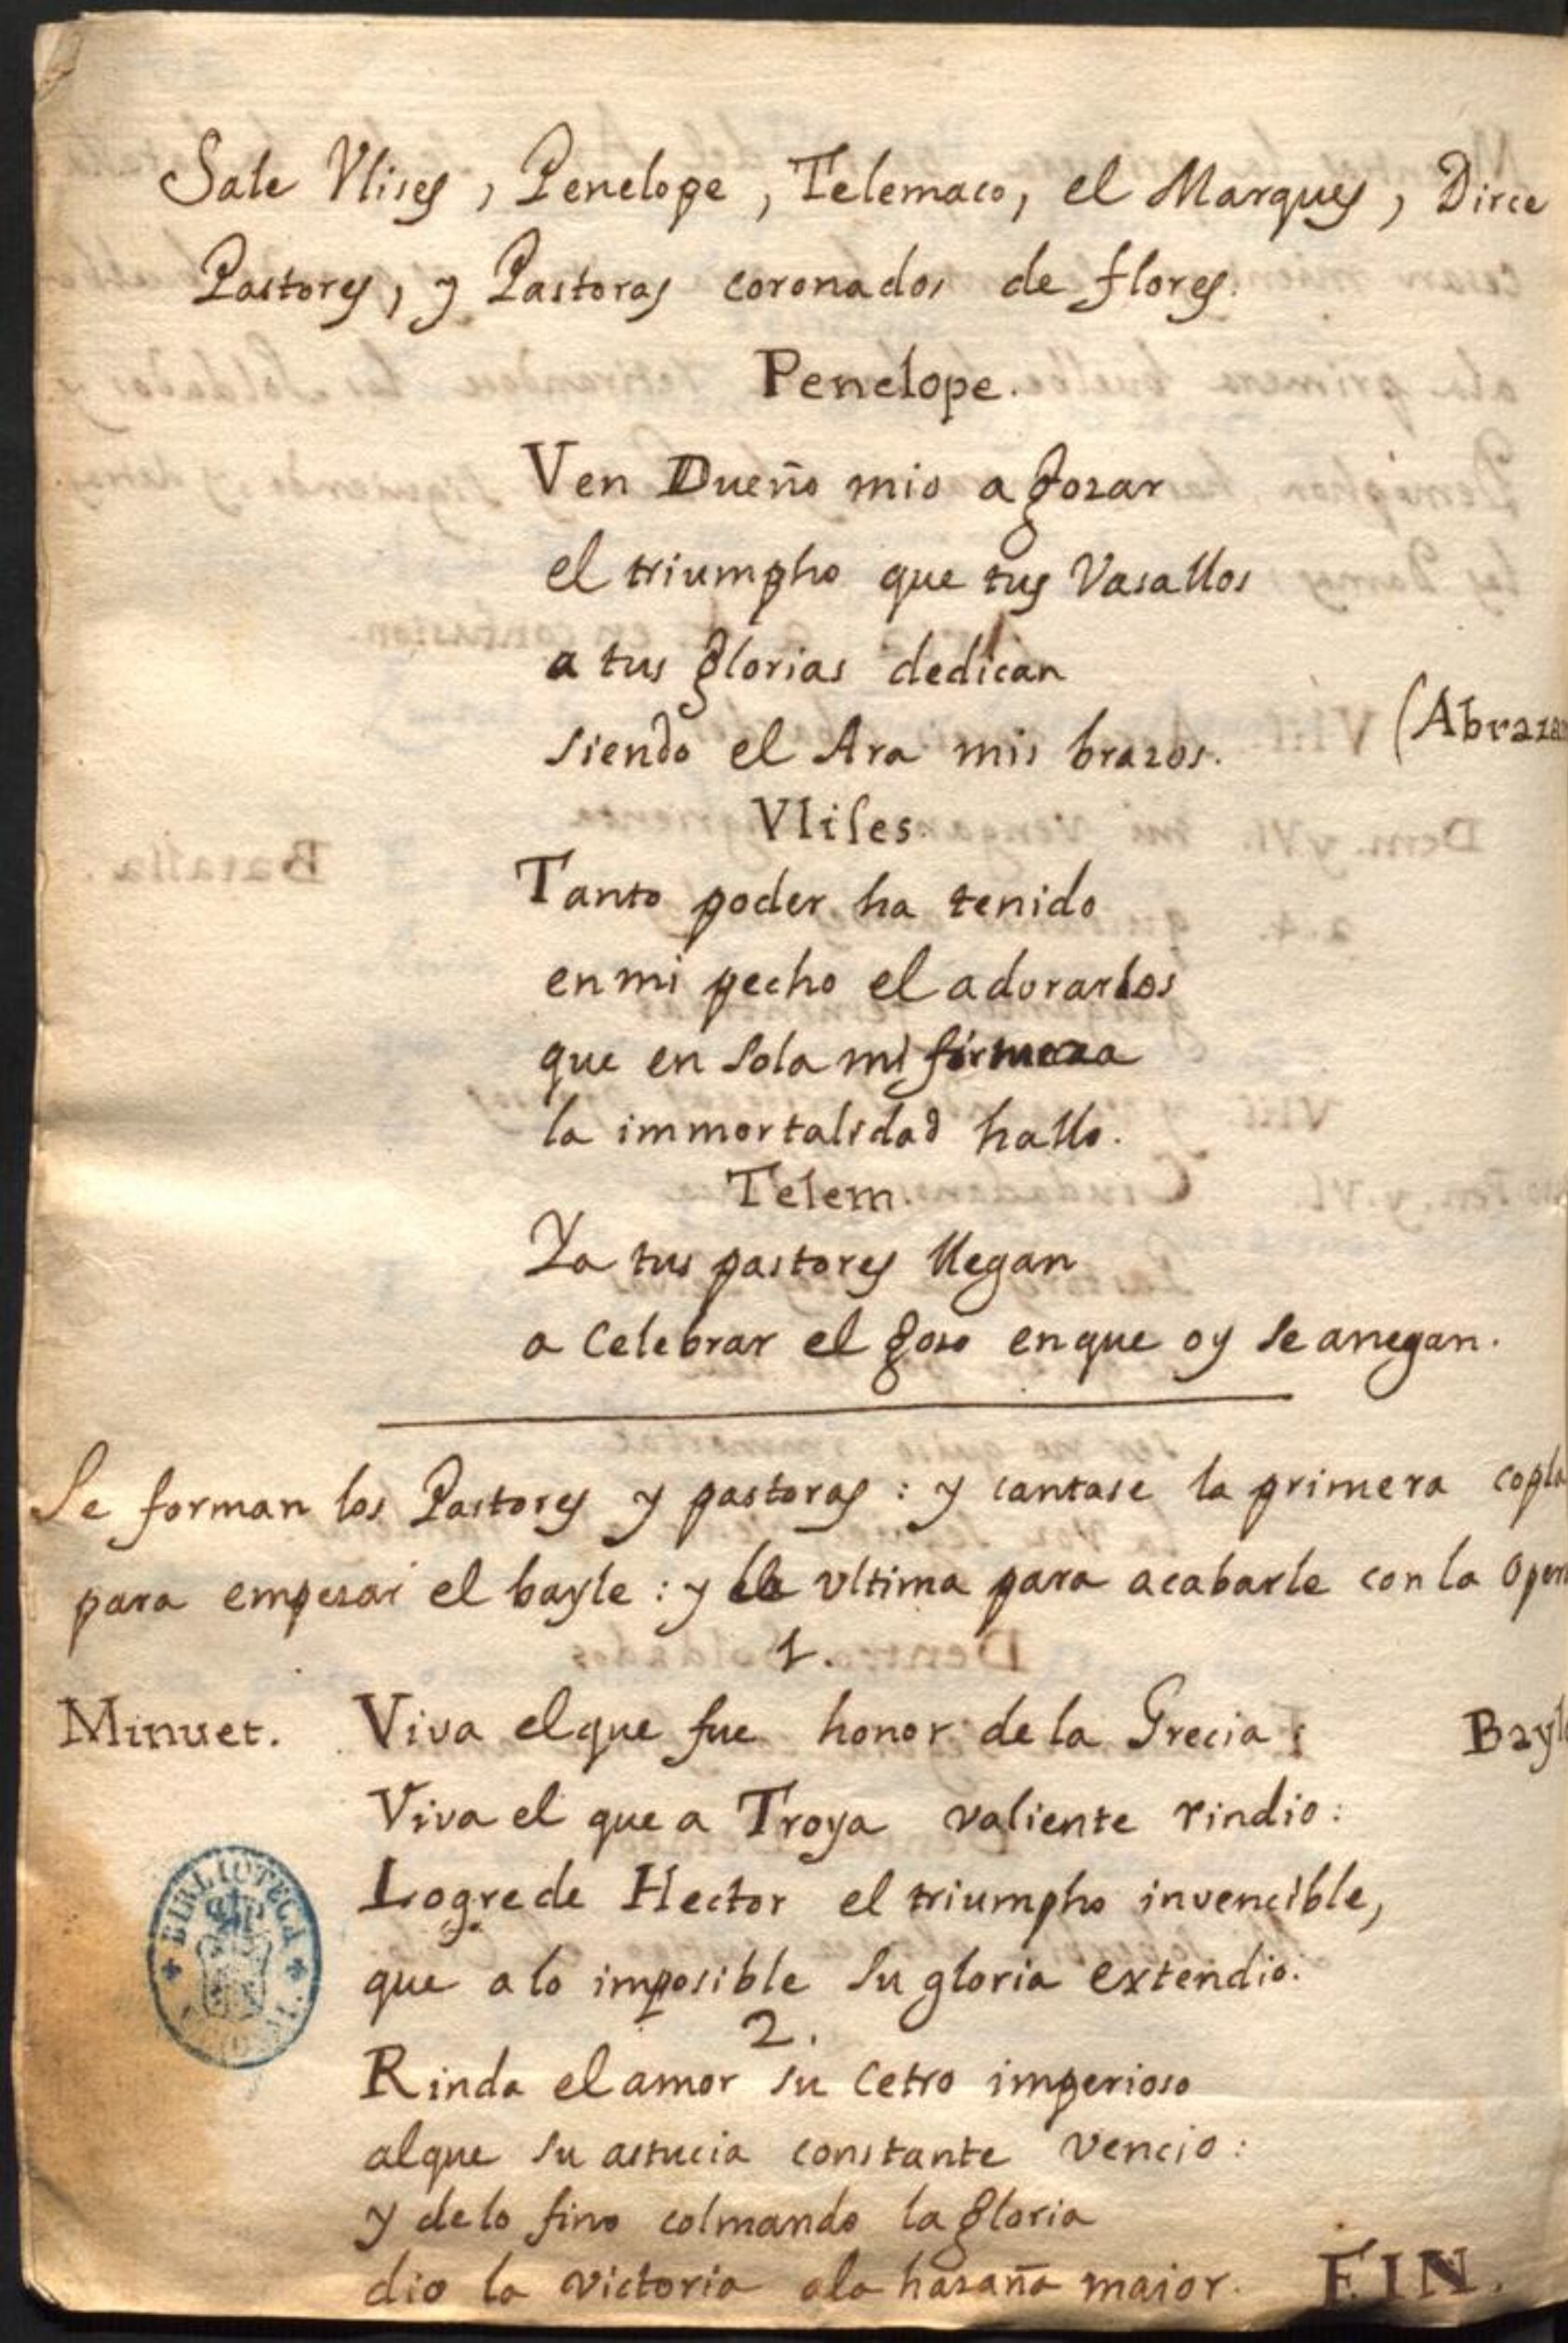 Sale Vlises, Penelope, Telemaco, el Marques, Dirce
Pastores, y Pastoras coronados de flores.
Penelope.
Ven Dueño mio a gozar
el triumpho que tus Vasallos
a tus glorias dedican
siendo el Ara mis brazos. (Abrazan
Vlises
Tanto poder ha tenido
en mi pecho el adorarlos
que en sola mi firmeza
la immortalidad hallo.
Telem.
Ya tus pastores llegan
a celebrar el gozo en que oy se anegan.
Se forman los Pastores y pastoras: y cantase la primera copla
para empezar el bayle: y la vltima para acabarle con la Oper
1.
Minuet. Viva el que fue honor de la Grecia: Bayle
Viva el que a Troya valiente rindio:
Logre de Hector el triumpho invencible,
que a lo imposible su gloria extendio.
2.
Rinda el amor su cetro imperioso
al que su astucia constante vencio:
y de lo fino colmando la gloria
dio la victoria a la hazaña maior. FIN.
BIBLIOTECA